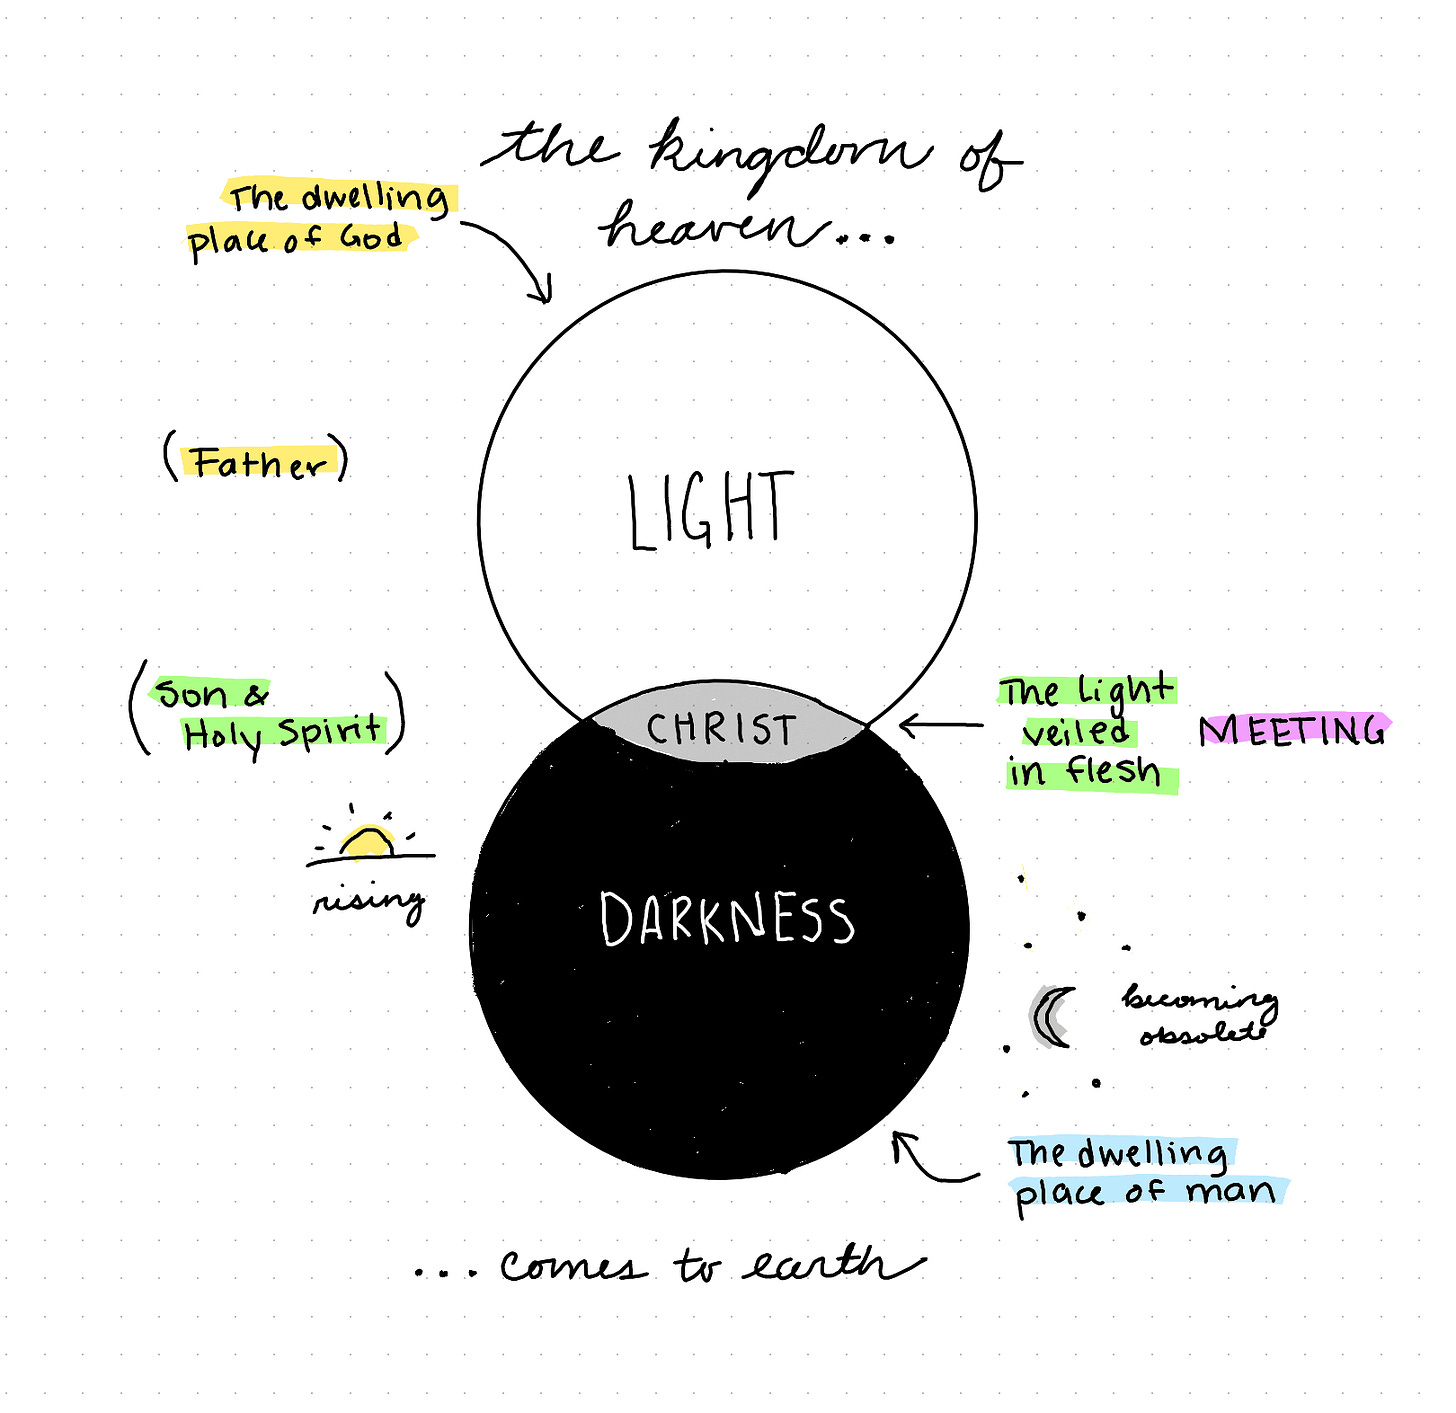 the kingdom of
heaven...
The dwelling
place of God
(Father)
LIGHT
(Son &
Holy Spirit)
CHRIST
The Light
veiled
in flesh
MEETING
rising
DARKNESS
becoming
obsolete
The dwelling
place of man
...comes to earth